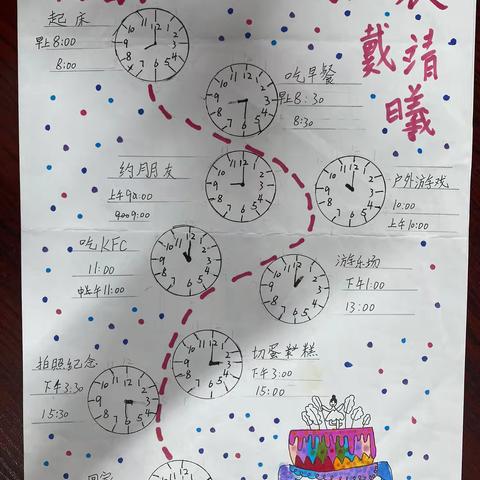 起床
早上8:00
8:00
吃早餐
早上8:30
8:30
戴靖曦
约朋友
上午9:00
9:00
户外游戏
10:00
上午10:00
吃KFC
11:00
中午11:00
游乐场
下午1:00
13:00
拍照纪念
下午3:30
15:30
切蛋糕
下午3:00
15:00